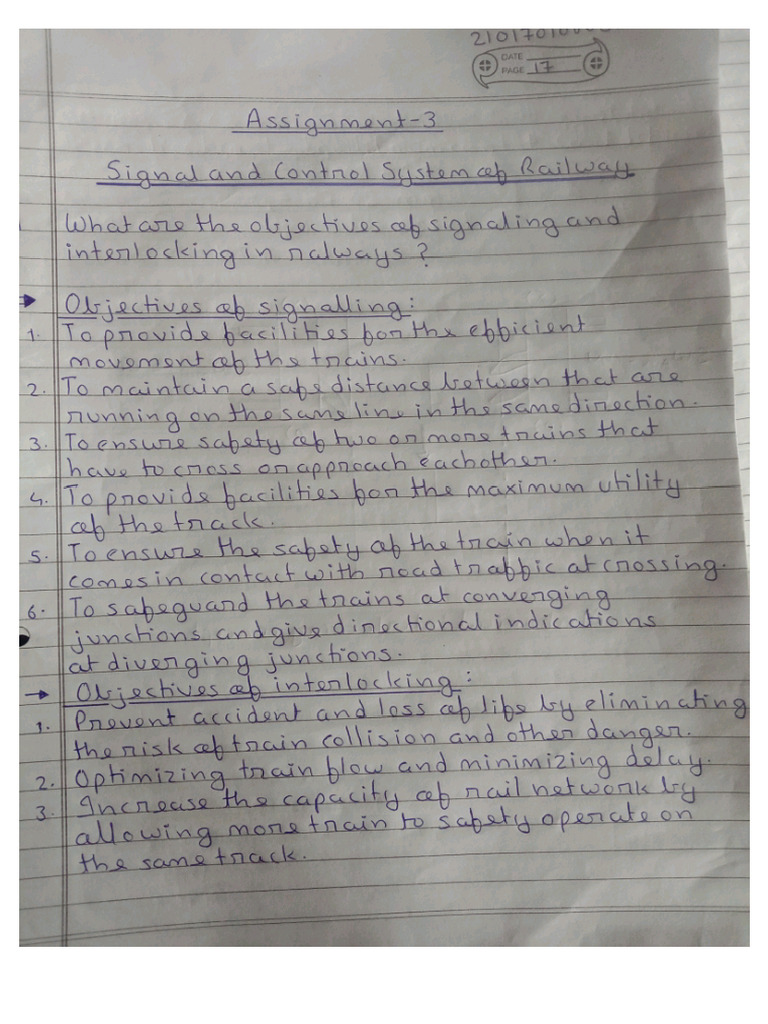 DATE
PAGE 17
Assignment-3
Signal and Control System of Railway
What are the objectives of signaling and
interlocking in railways?
→ Objectives of signalling:
1. To provide facilities for the efficient
movement of the trains.
2. To maintain a safe distance between that are
running on the same line in the same direction.
3. To ensure safety of two or more trains that
have to cross or approach eachother.
4. To provide facilities for the maximum utility
of the track.
5. To ensure the safety of the train when it
comes in contact with road traffic at crossing.
6. To safeguard the trains at converging
junctions and give directional indications
at diverging junctions.
→ Objectives of interlocking:
1. Prevent accident and loss of life by eliminating
the risk of train collision and other danger.
2. Optimizing train flow and minimizing delay.
3. Increase the capacity of rail network by
allowing more train to safety operate on
the same track.